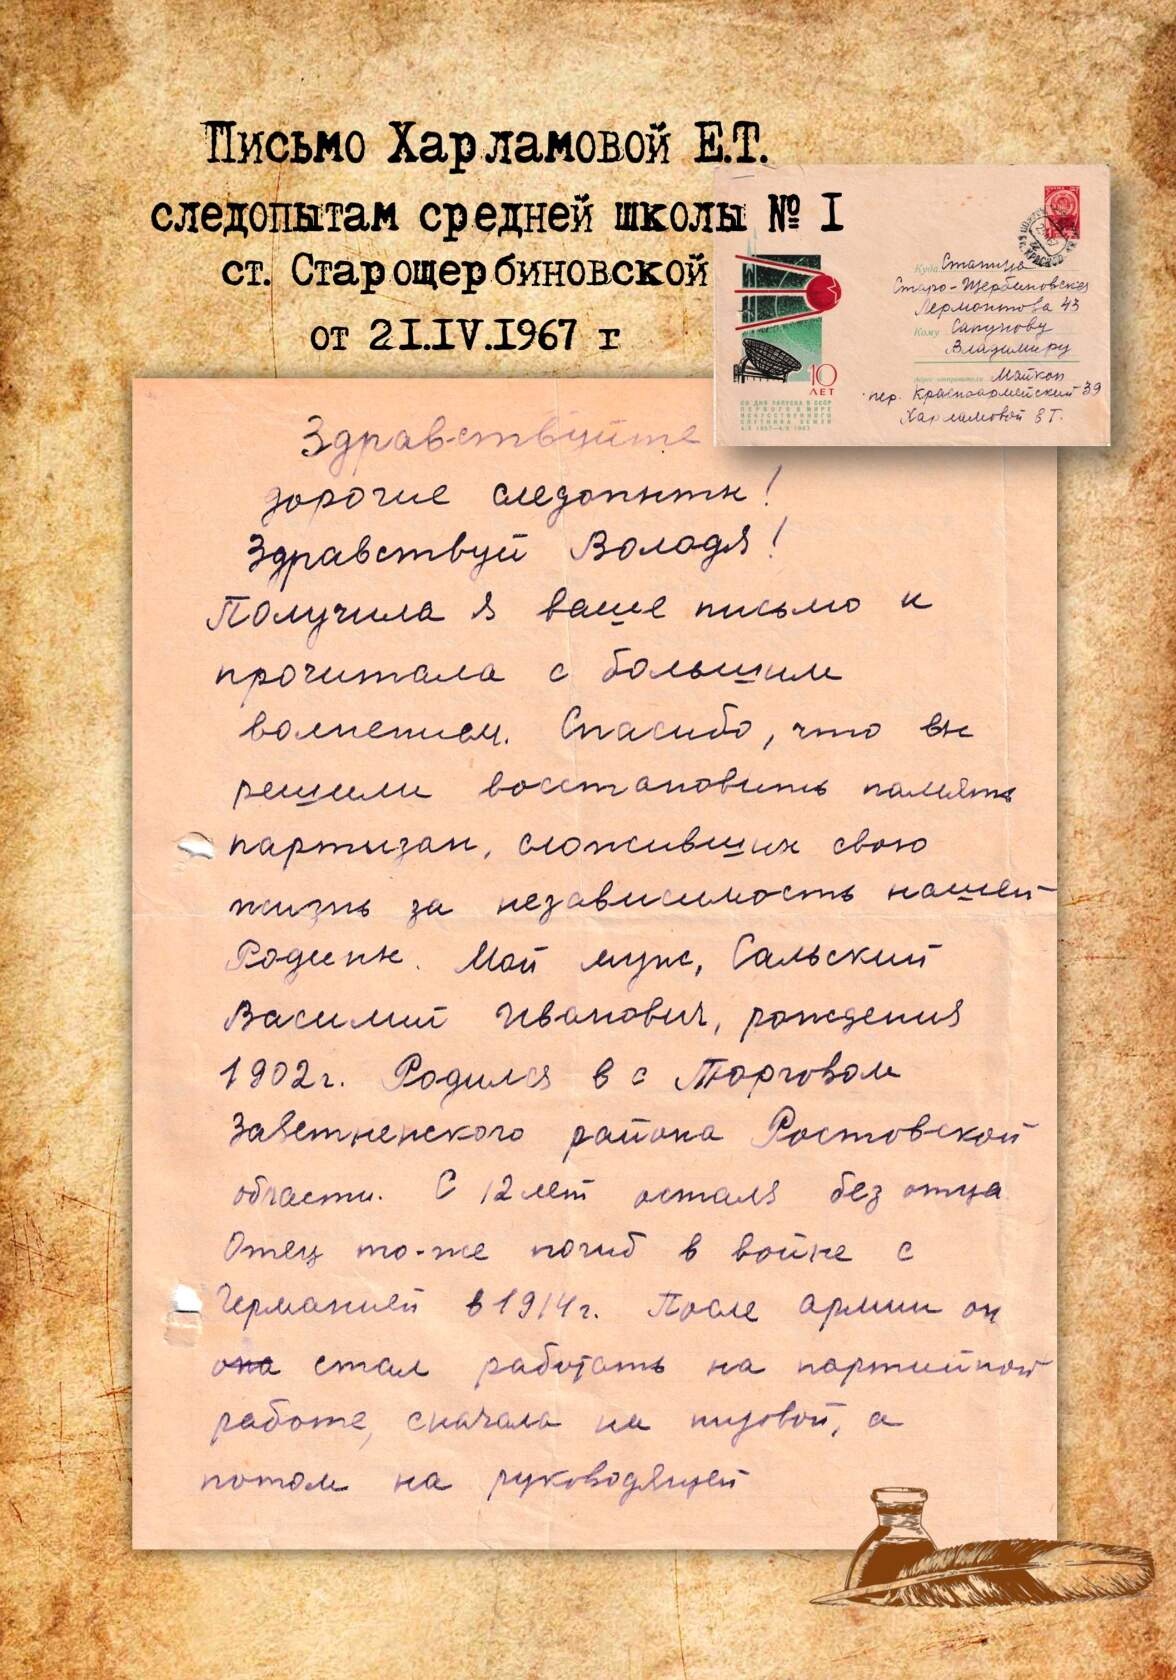 Письмо Харламовой Е.Т.
следопытам средней школы № 1
ст. Старощербиновской
от 21.IV.1967 г
Куда Станица
Старо-Щербиновская
Лермонтова 43
Кому Сапунову
Владимиру
Майкоп
пер. Красноармейский 39
Харламовой Е Т.
10
ЛЕТ
СО ДНЯ ЗАПУСКА В СССР
ПЕРВОГО В МИРЕ
ИСКУССТВЕННОГО
СПУТНИКА ЗЕМЛИ
4.X 1957—4.X 1967
Здравствуйте
дорогие следопыты!
Здравствуй Володя!
Получила я ваше письмо и
прочитала с большим
волнением. Спасибо, что вы
решили восстановить память
партизан, сложивших свою
жизнь за независимость нашей
Родины. Мой муж, Сальский
Василий Иванович, рождения
1902г. Родился в с Торговом
Заветненского района Ростовской
области. С 12 лет остался без отца
Отец то-же погиб в войне с
Германией в 1914г. После армии он
она стал работать на партийной
работе, сначала на низовой, а
потом на руководящей